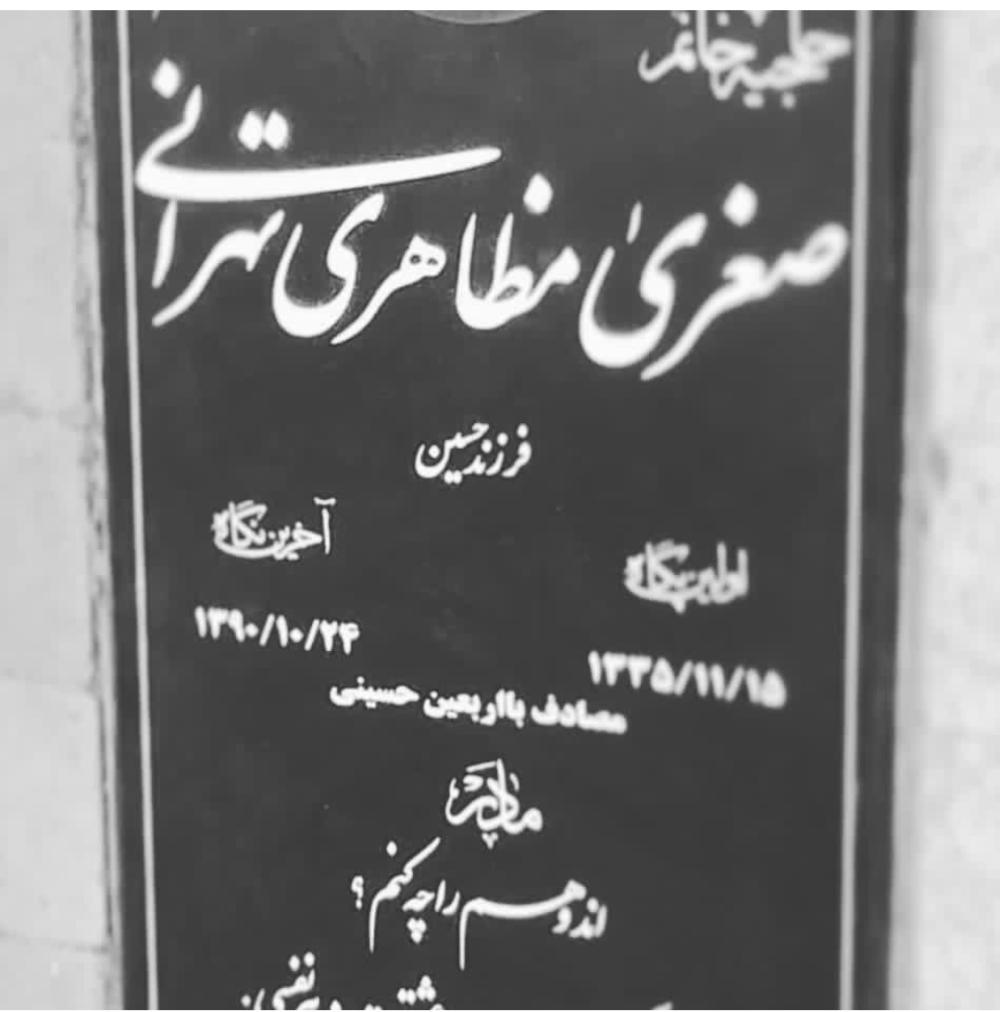 حاجیه خانم
صغریٰ مظاهری تهرانی
فرزند حسین
اولین نگاه
آخرین نگاه
۱۳۳۵/۱۱/۱۵
۱۳۹۰/۱۰/۲۴
مصادف بااربعین حسینی
مادر
اندوهم را چه کنم ؟